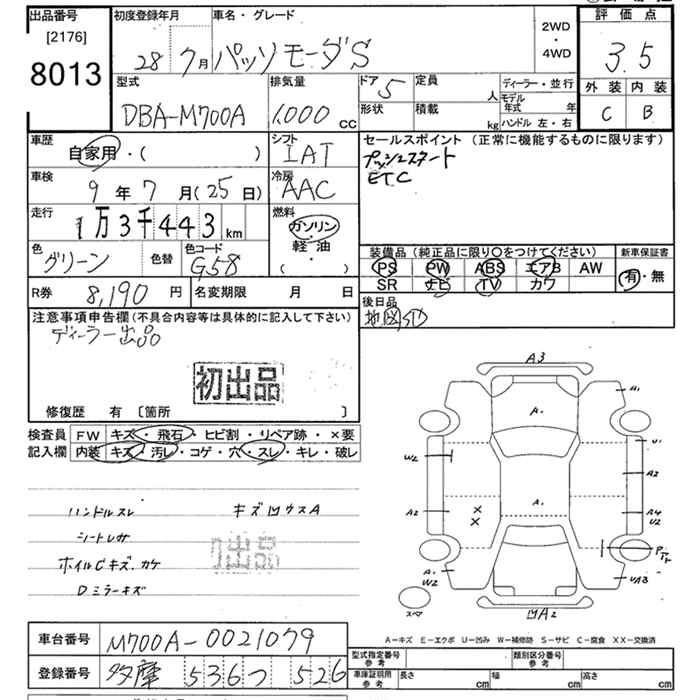 出品番号
[2176]
8013
初度登録年月
28 7月
車名・グレード
パッソ モーダS
2WD
・
4WD
評価点
3.5
外装 内装
C B
型式
DBA-M700A
排気量
1,000 cc
ドア 5
定員 人
形状
積載 kg
ディーラー・並行
モデル年式 年
ハンドル 左・右
車歴
自家用・( )
シフト
IAT
セールスポイント (正常に機能するものに限ります)
プッシュスタート
ETC
車検
9年7月(25日)
冷房
AAC
走行
1万3千443km
燃料
ガソリン
・
軽油
( )
色
グリーン
色替
色コード
G58
装備品 (純正品に限り○をつけてください)
PS PW ABS エアB AW
SR ナビ TV カワ
新車保証書
有・無
R券 8,190円
名変期限 月 日
後日品
地図SD
注意事項申告欄 (不具合内容等は具体的に記入して下さい)
ディーラー出品
初出品
修復歴 有 [箇所 ]
検査員 記入欄
FW キズ・飛石・ヒビ割・リペア跡・×要
内装 キズ・汚レ・コゲ・穴・スレ・キレ・破レ
ハンドルスレ キズ凹ウスA
シートレサ
ホイルCキズ、カケ
Dミラーキズ
出品
A3
A-
A-
W2
A2
U-
A2
A4
U2
A-
W2
UA3
スペア
凹A2
A-キズ E-エクボ U-凹み W-補修跡 S-サビ C-腐食 XX-交換済
車台番号 M700A-0021079
登録番号 多摩 536つ 526
型式指定番号 参考
類別区分番号 参考
車庫証明用 参考
長さ cm
幅 cm
高さ cm